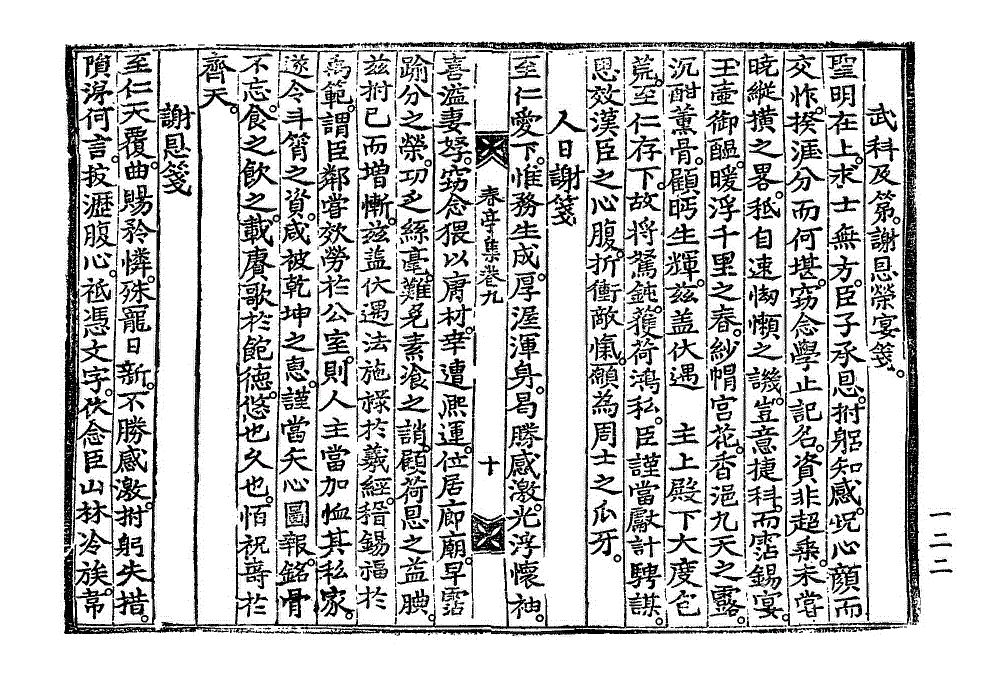 武科及第。謝恩榮宴箋。
聖明在上。求士無方。臣子承恩。拊躬知感。怳心顔而
交怍。揆涯分而何堪。竊念學止記名。資非超乘。未甞
曉縱橫之畧。秪自速㥘懶之譏。豈意捷科。而霑錫宴。
玉壺御醞。暖浮千里之春。紗帽宮花。香浥九天之露。
沉酣薰骨。顧眄生輝。玆盖伏遇　主上殿下大度包
荒。至仁存下。故將駑鈍。獲荷鴻私。臣謹當獻計騁謀。
思效漢臣之心腹。折衝敵愾。願爲周士之爪牙。
人日謝箋
至仁愛下。惟務生成。厚渥渾身。曷勝感激。光浮懷袖。
春亭集卷九
十
喜溢妻孥。竊念猥以庸材。幸遭熙運。位居廊廟。早霑
踰分之榮。功乏絲毫。難免素飡之誚。顧荷恩之益腆。
玆拊己而增慚。玆盖伏遇法施祿於羲經。稽錫福於
禹範。謂臣鄰嘗效勞於公室。則人主當加恤其私家。
遂令斗筲之資。咸被乾坤之惠。謹當矢心圖報。銘骨
不忘。食之飮之。載賡歌於飽德。悠也久也。恒祝壽於
齊天。
謝恩箋
至仁天覆。曲賜矜憐。殊寵日新。不勝感激。拊躬失措。
隕淂何言。披瀝腹心。祗憑文字。伏念臣山林冷族。常
一二二